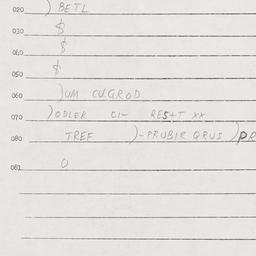 020 ) BETL
030 $
040 $
050 $
060 )UM CU.GROD
070 )ODLER CI- REST XX
080 TREF )-PRUBIR QRUS )PR
081 O